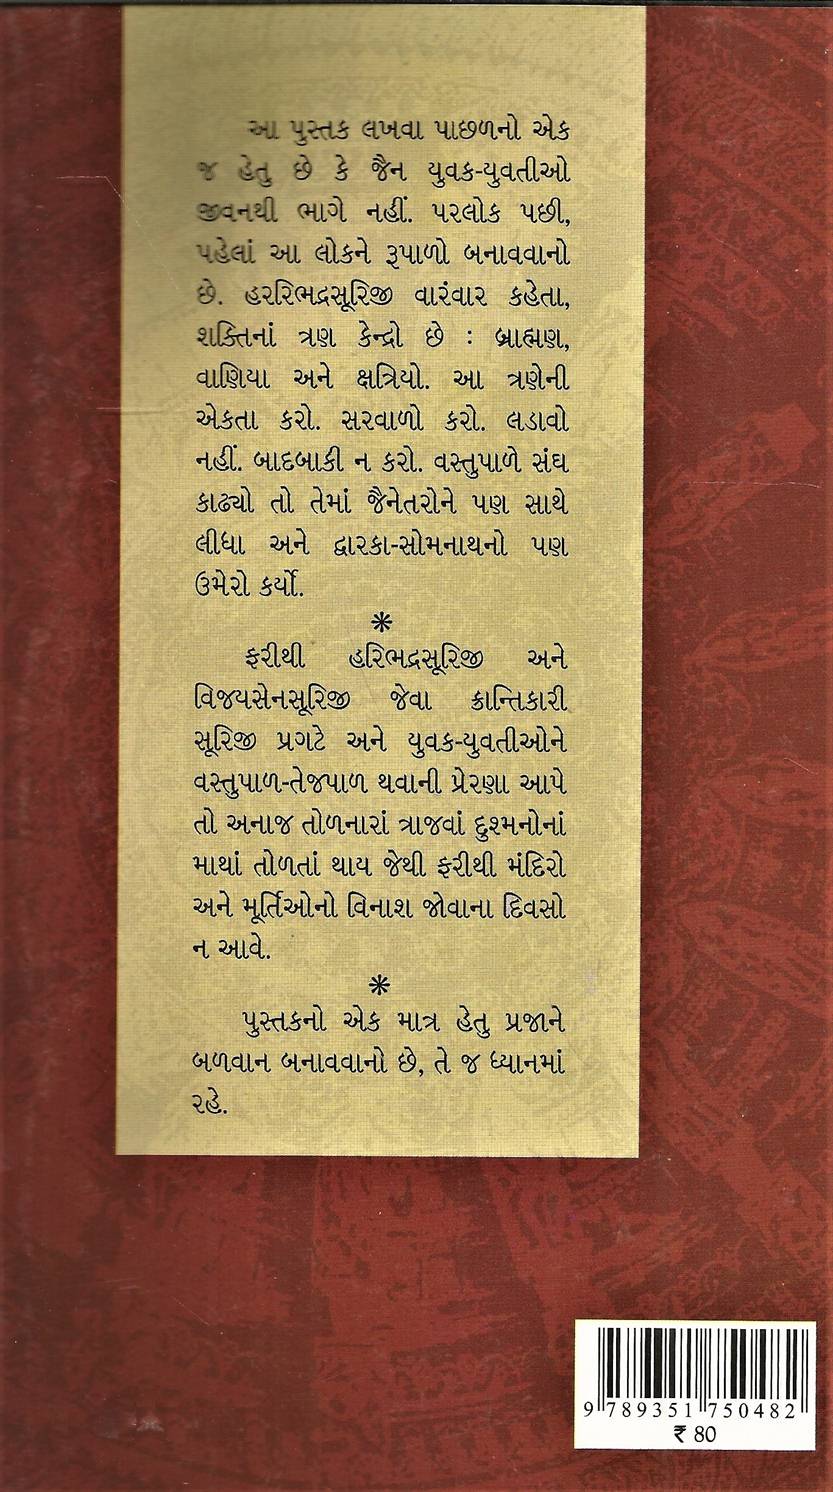 આ પુસ્તક લખવા પાછળનો એક
જ હેતુ છે કે જૈન યુવક-યુવતીઓ
જીવનથી ભાગે નહીં. પરલોક પછી,
પહેલાં આ લોકને રૂપાળો બનાવવાનો
છે. હરરિભદ્રસૂરિજી વારંવાર કહેતા,
શક્તિનાં ત્રણ કેન્દ્રો છે : બ્રાહ્મણ,
વાણિયા અને ક્ષત્રિયો. આ ત્રણેની
એકતા કરો. સરવાળો કરો. લડાવો
નહીં. બાદબાકી ન કરો. વસ્તુપાળે સંઘ
કાઢ્યો તો તેમાં જૈનેતરોને પણ સાથે
લીધા અને દ્વારકા-સોમનાથનો પણ
ઉમેરો કર્યો.
*
ફરીથી હરિભદ્રસૂરિજી અને
વિજયસેનસૂરિજી જેવા ક્રાન્તિકારી
સૂરિજી પ્રગટે અને યુવક-યુવતીઓને
વસ્તુપાળ-તેજપાળ થવાની પ્રેરણા આપે
તો અનાજ તોળનારાં ત્રાજવાં દુશ્મનોનાં
માથાં તોળતાં થાય જેથી ફરીથી મંદિરો
અને મૂર્તિઓનો વિનાશ જોવાના દિવસો
ન આવે.
*
પુસ્તકનો એક માત્ર હેતુ પ્રજાને
બળવાન બનાવવાનો છે, તે જ ધ્યાનમાં
રહે.
9 789351 750482
₹ 80